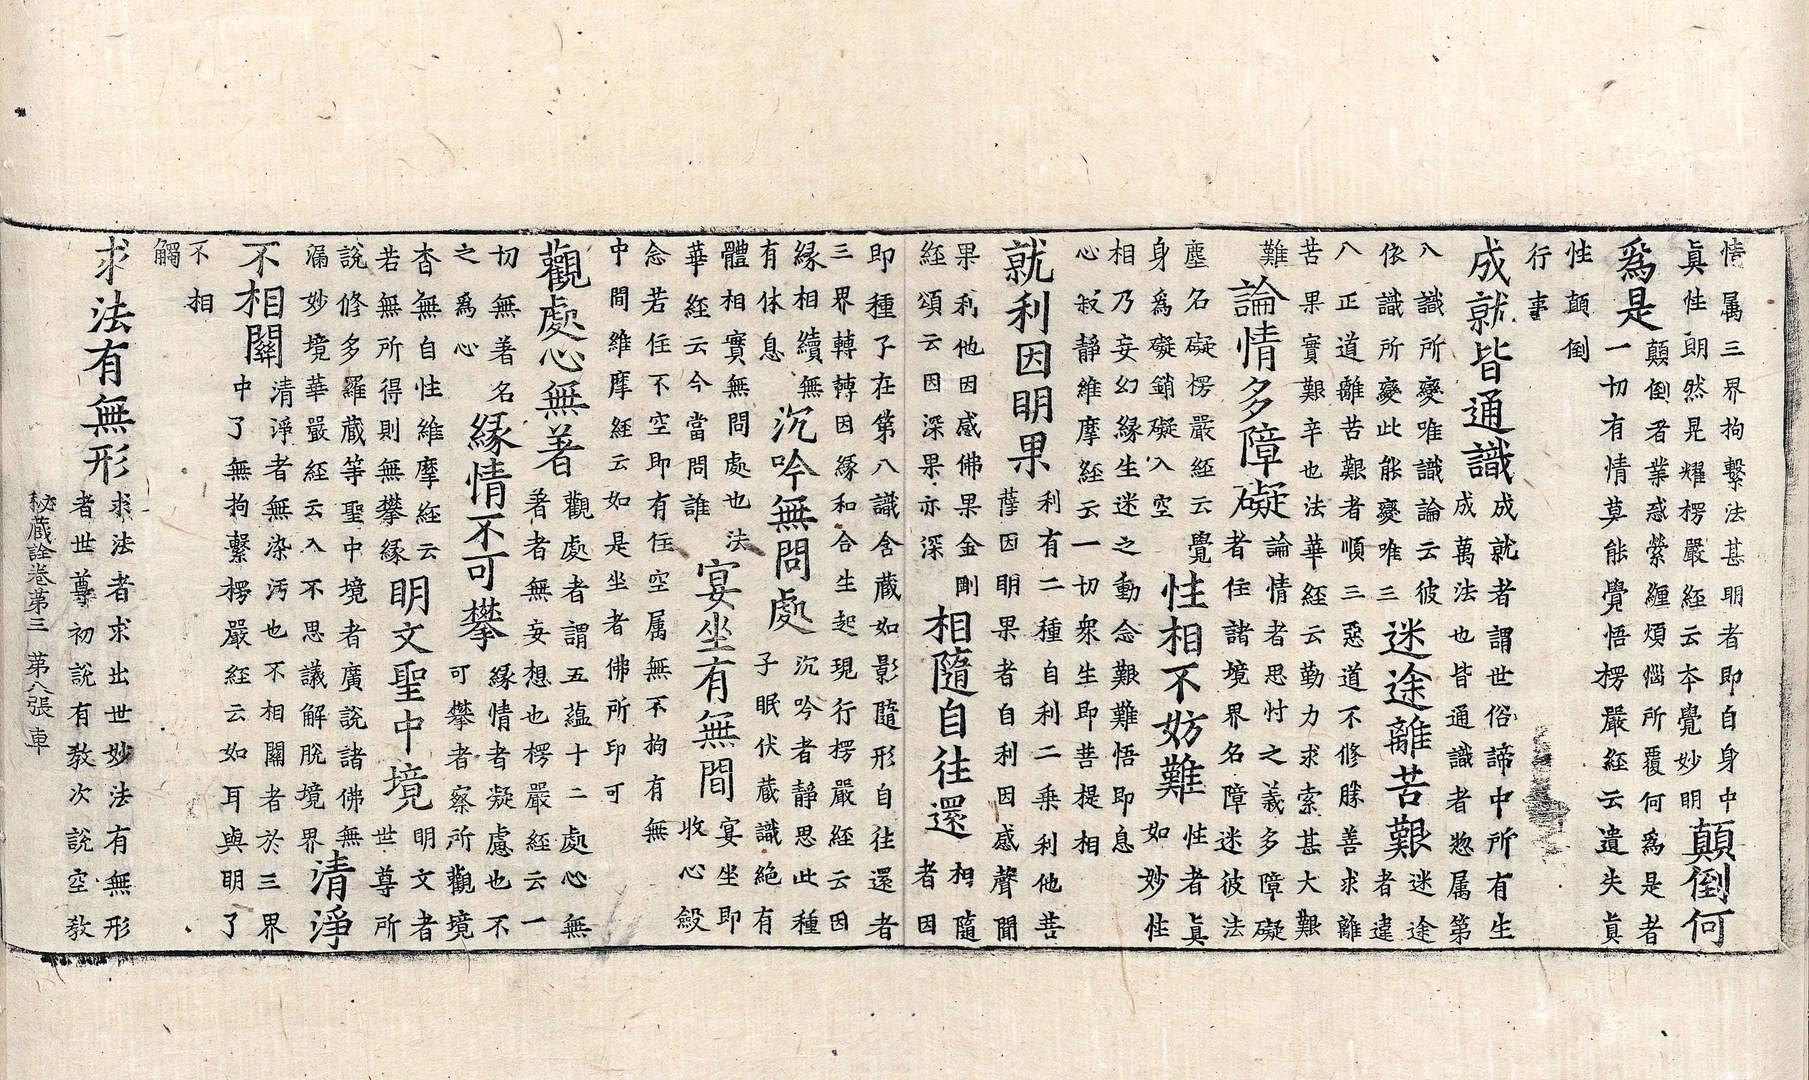 情属三界拘繫法甚明者即自身中
眞性朗然晃耀楞嚴經云夲覺妙明
顛倒何
爲是
顛倒者業惑縈纏煩惱所覆何爲是者
一切有情莫能覺悟楞嚴經云遺失眞
性顛倒
行事
成就皆通識
成就者謂世俗諦中所有生
成萬法也皆通識者惣属第
八識所變唯識論云彼
依識所變此能變唯三
迷途離苦艱
迷途
者違
八正道離苦艱者順三惡道不修勝善求離
苦果實艱辛也法華經云勤力求索甚大艱
難
論情多障礙
論情者思忖之義多障礙
者任諸境界名障迷彼法
塵名礙楞嚴經云覺
身爲礙銷礙入空
性相不妨難
性者眞
如妙性
相乃妄幻緣生迷之動念艱難悟即息
心寂靜維摩經云一切衆生即菩提相
就利因明果
利有二種自利二乘利他菩
薩因明果者自利因感聲聞
果利他因感佛果金剛
經頌云因深果亦深
相隨自往還
相隨
者因
即種子在第八識含藏如影隨形自往還者
三界轉轉因緣和合生起現行楞嚴經云因
緣相續無
有休息
沉吟無問處
沉吟者静思此種
子眠伏藏識絶有
體相實無問處也法
華經云今當問誰
宴坐有無間
宴坐即
收心斂
念若任不空即有任空属無不拘有無
中間維摩經云如是坐者佛所印可
觀處心無著
觀處者謂五蘊十二處心無
著者無妄想也楞嚴經云一
切無著名
之爲心
緣情不可攀
緣情者凝慮也不
可攀者察所觀境
杳無自性維摩經云
若無所得則無攀緣
明文聖中境
明文者
世尊所
說修多羅藏等聖中境者廣說諸佛無
漏妙境華嚴經云入不思議解脫境界
清淨
不相關
清淨者無染汚也不相關者於三界
中了無拘繫楞嚴經云如耳與明了
不相
觸
求法有無形
求法者求出世妙法有無形
者世尊初說有教次說空教
秘藏詮卷第三 第八張 車